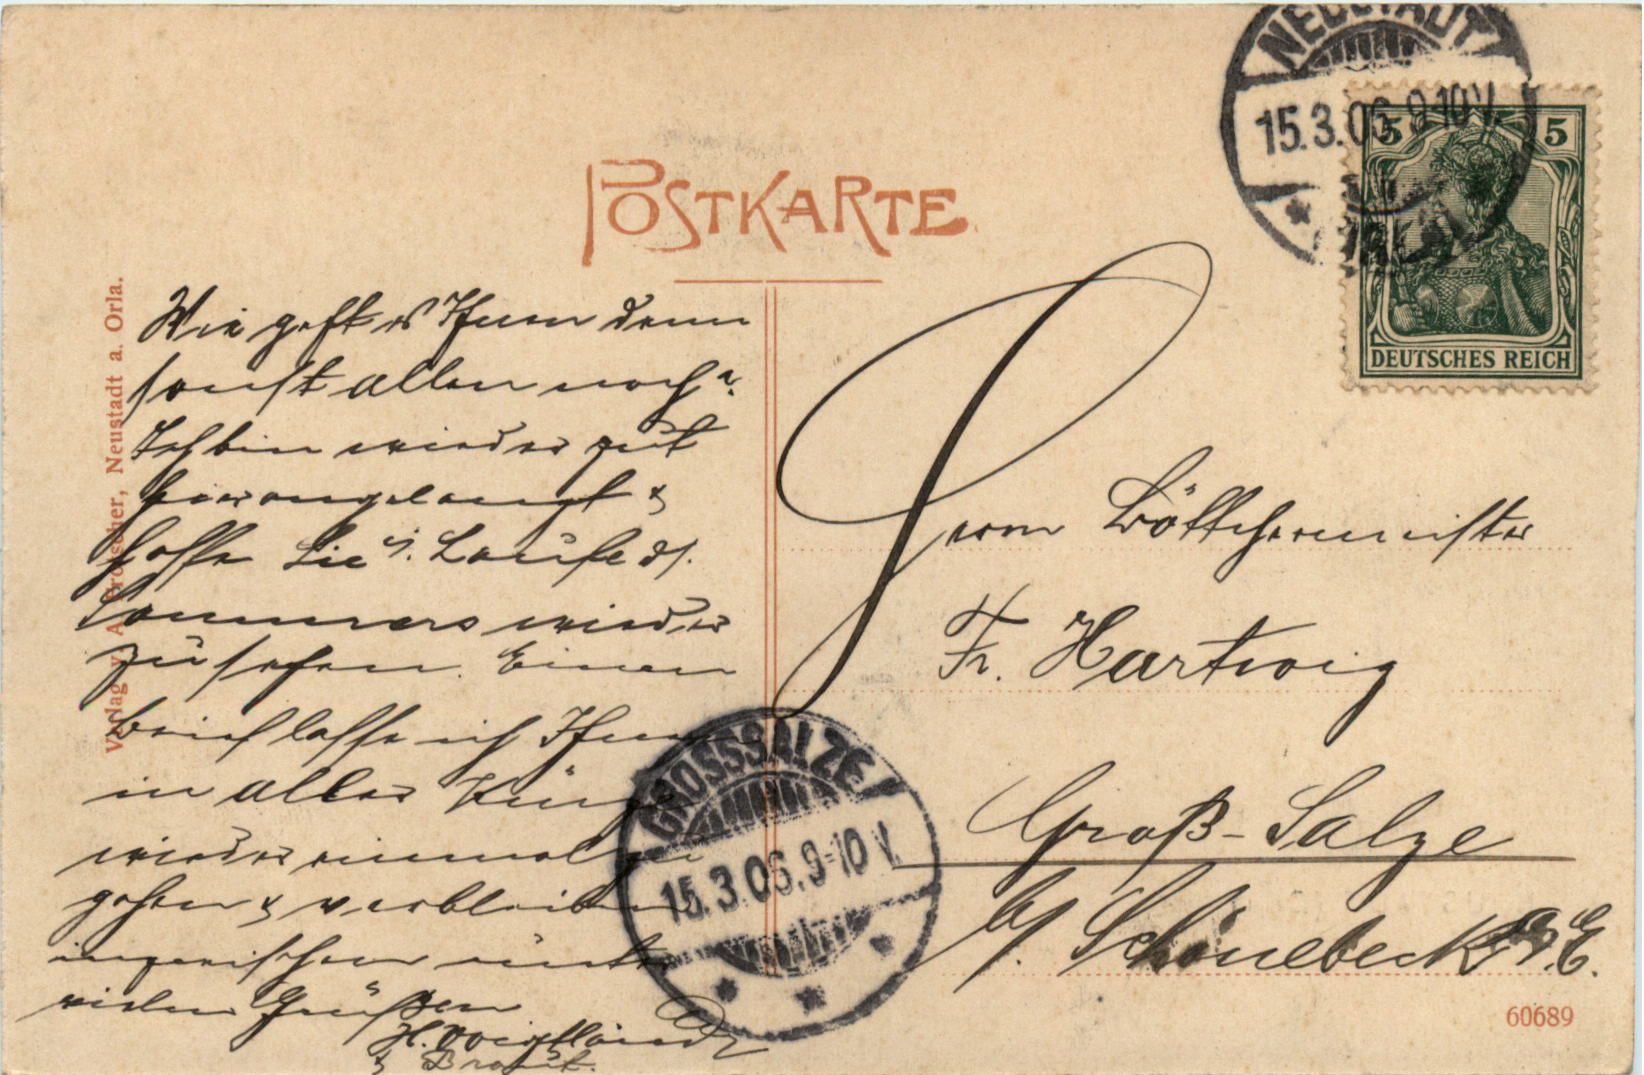 POSTKARTE
Wie geht es Ihnen denn
sonst allen noch?
Ich bin wieder gut
hier angelangt &
hoffe Sie i. Laufe ds.
Sommers wieder
zu sehen. Einen
Brief lasse ich Ihnen
in aller Kürze
wieder einmal zu
gehen & verbleibe
inzwischen unter
vielen Grüßen
H. Voigtländer
& Braut.
Herrn Böttchermeister
Fr. Hartwig
Groß-Salze
b/. Schönebeck a. E.
NEUSTADT
15.3.06. 9-10 V.
(ORLA)
5 5
DEUTSCHES REICH
GROSSSALZE
15.3.06. 9-10 V.
Verlag v. A. Broscher, Neustadt a. Orla.
60689